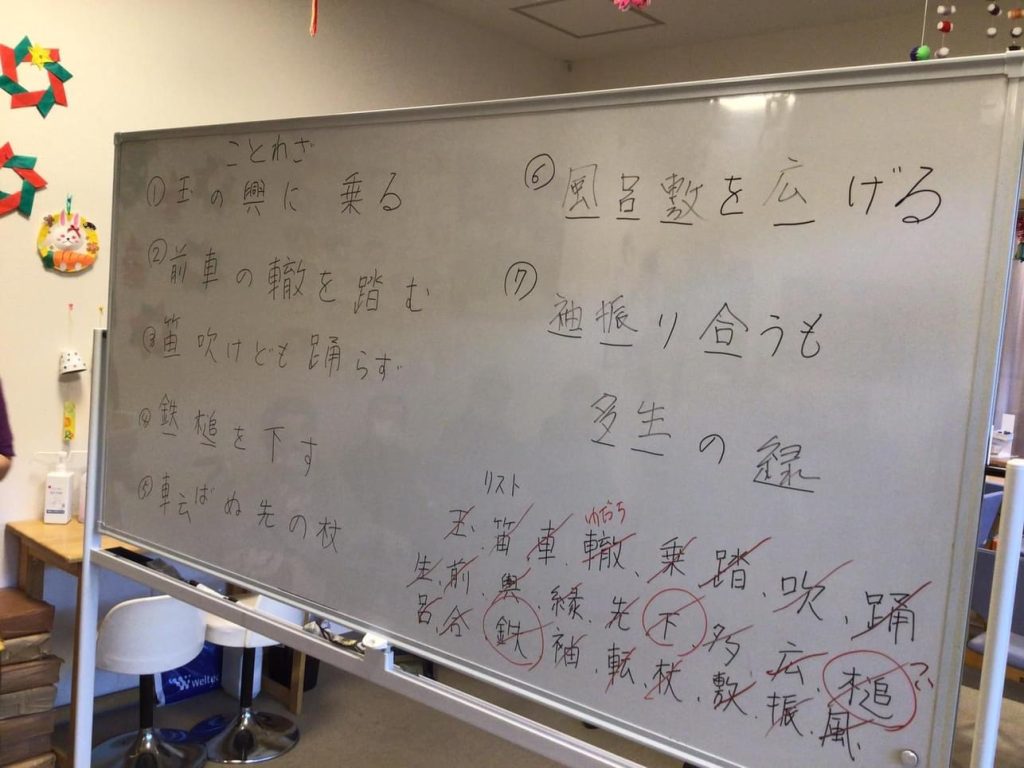 ことわざ
①玉の輿に乗る
②前車の轍を踏む
③笛吹けども踊らず
④鉄槌を下す
⑤転ばぬ先の杖
⑥風呂敷を広げる
⑦袖振り合うも
多生の縁
リスト
わだち
玉、笛、車、轍、乗、踏、吹、踊
生、前、輿、縁、先、下、多、広、槌 つい
呂、合、鉄、袖、転、杖、敷、振、風